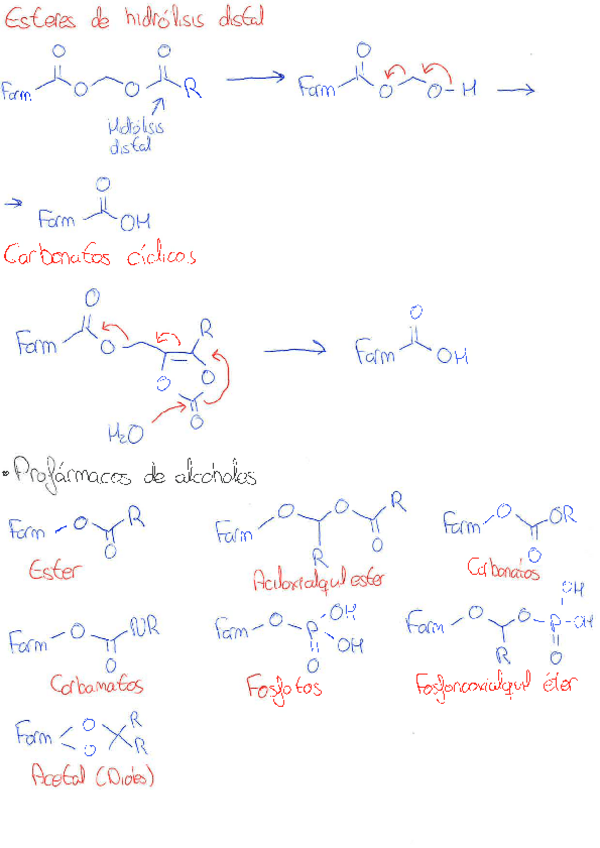 Esteres de hidrólisis distal
O O O
Farm O O R Farm O O-H
Hidrólisis
distal
O
Farm OH
Carbonatos cíclicos
O R O
Farm O Farm OH
O O
O
H2O
• Profármacos de alcoholes
Farm O R Farm O O R Farm O OR
O R O O
Ester Aciloxialquil ester Carbonatos
OH
Farm O NR Farm O P OH OH Farm O O P OH
O O R O
Carbamatos Fosfatos Fosfonooxialquil éter
Farm O O R R
Acetal (Dioles)